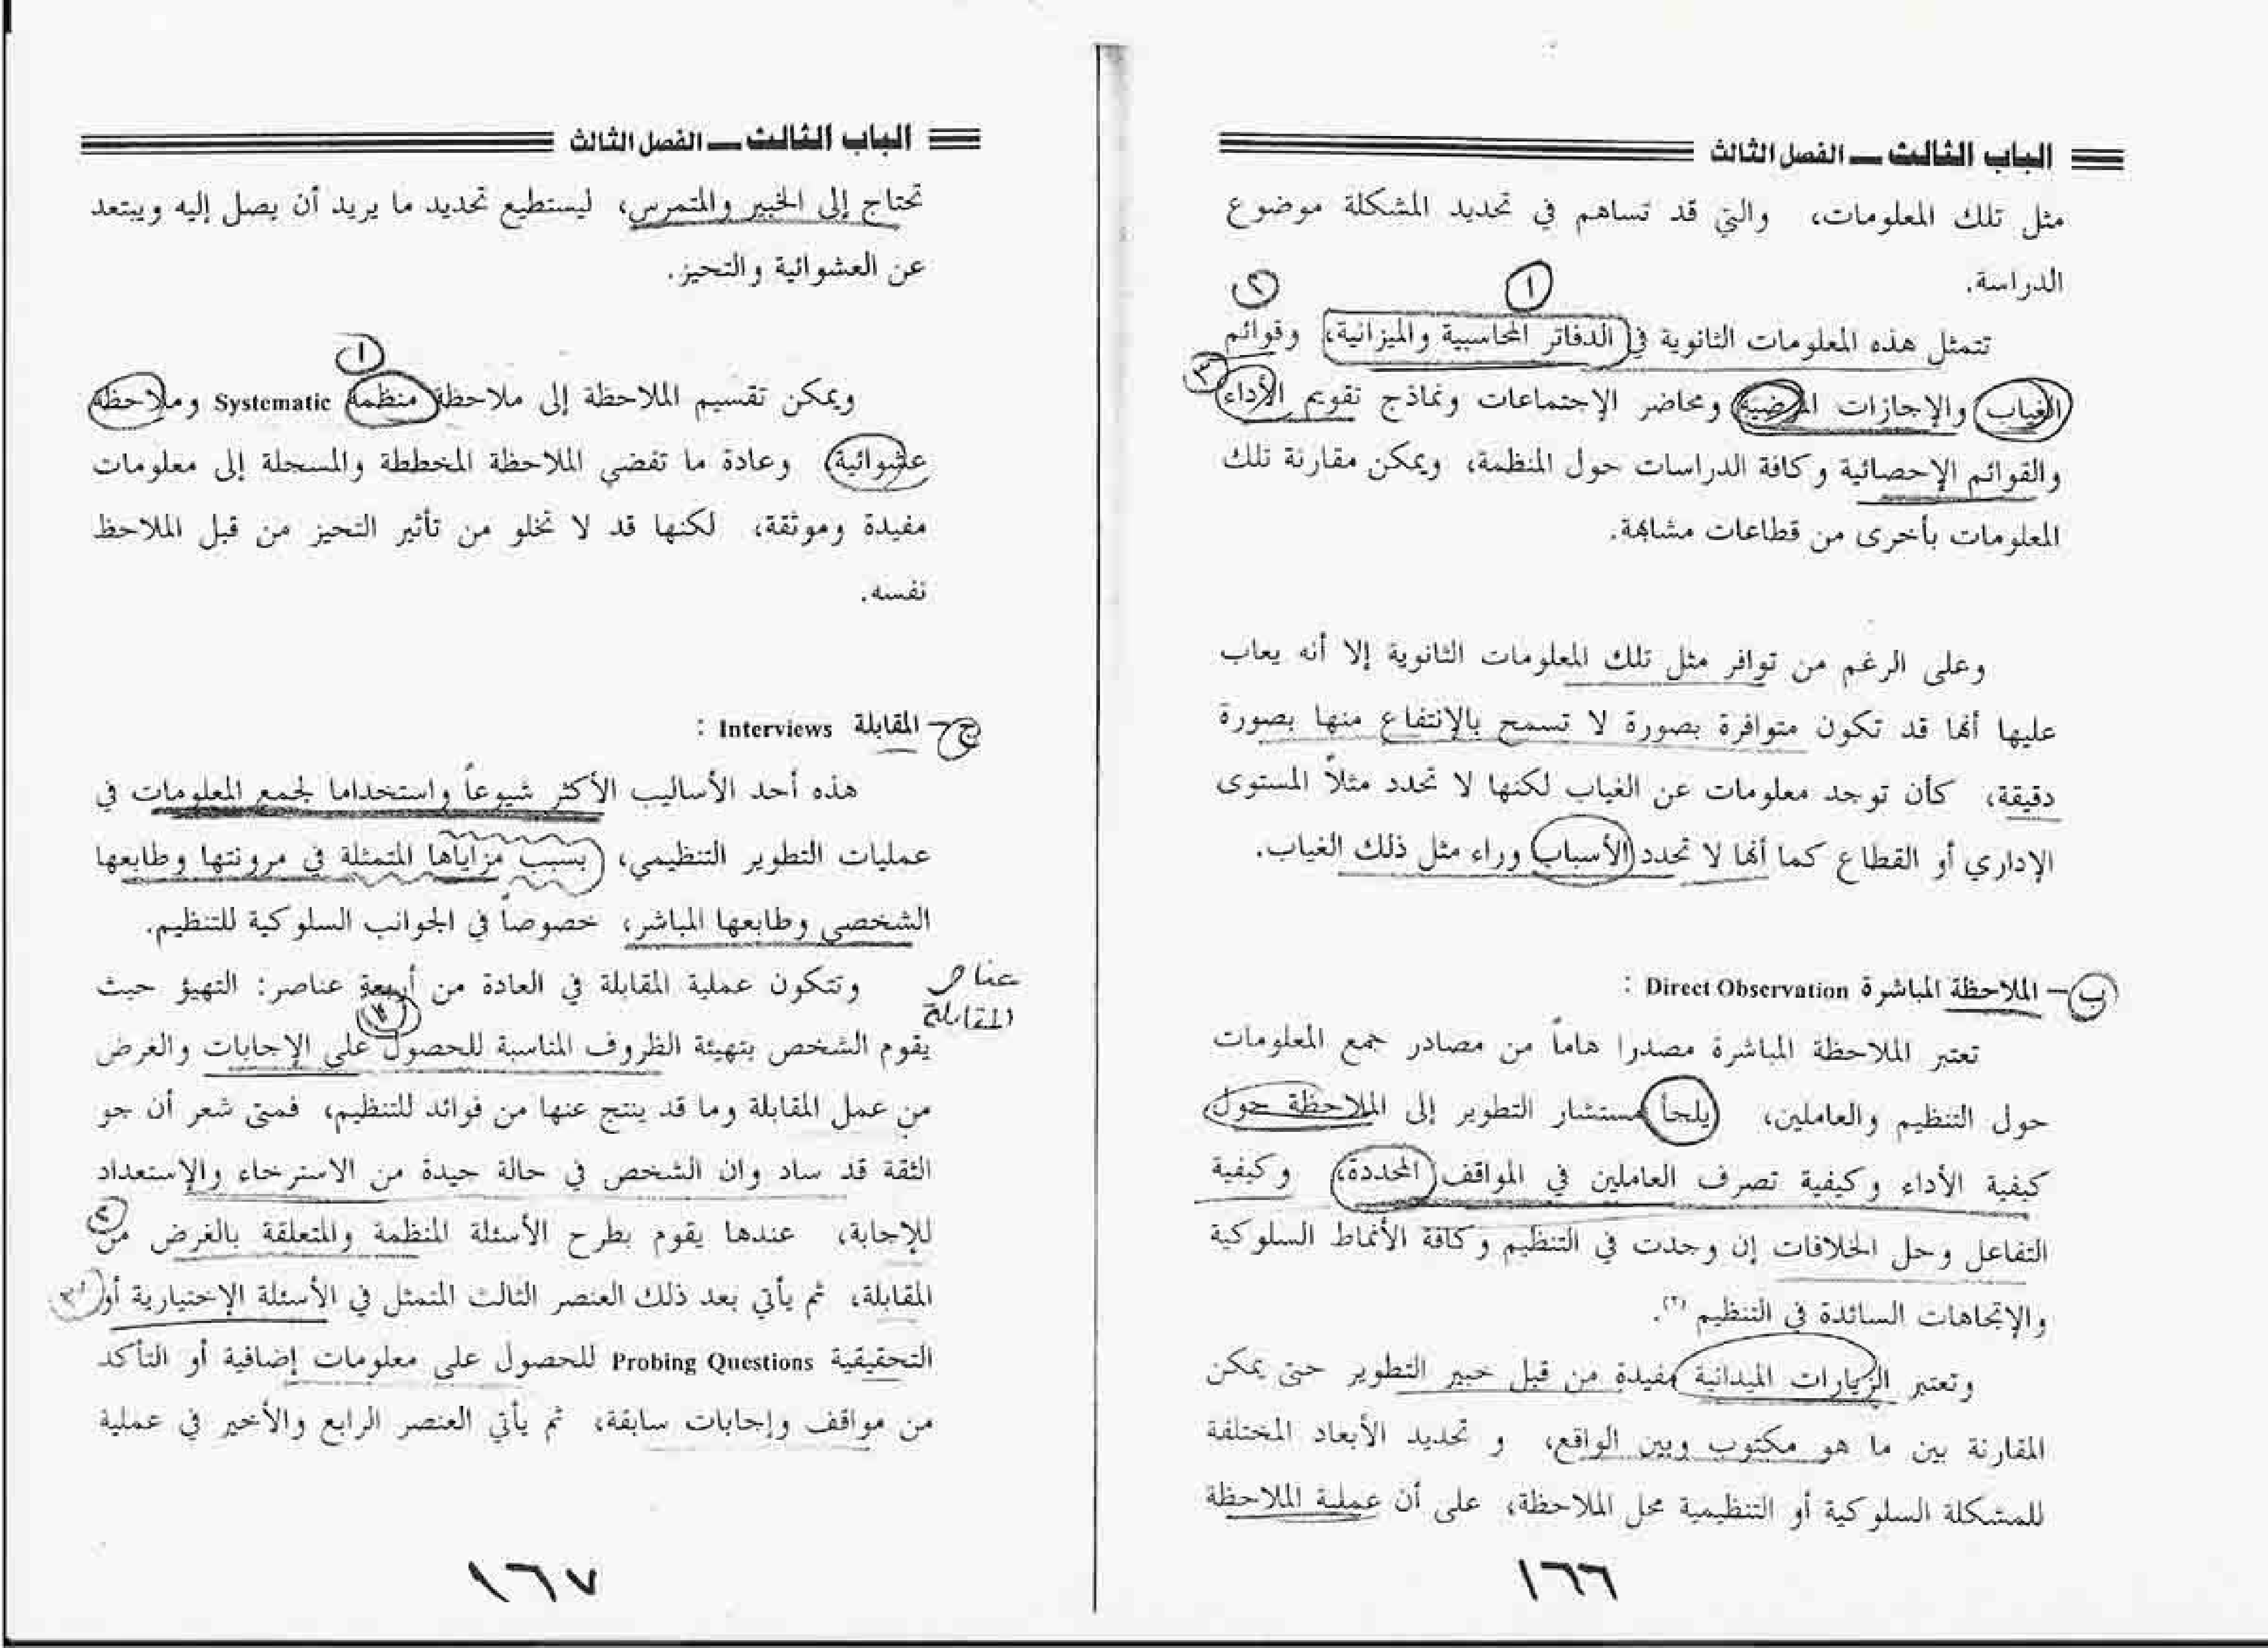 الباب الثالث ــ الفصل الثالث
مثل تلك المعلومات، والتي قد تساهم في تحديد المشكلة موضوع
الدراسة.
١ ٢
تتمثل هذه المعلومات الثانوية في الدفاتر المحاسبية والميزانية، وقوائم
٣
الغياب والإجازات المرضية ومحاضر الإجتماعات ونماذج تقويم الأداء
والقوائم الإحصائية وكافة الدراسات حول المنظمة، ويمكن مقارنة تلك
المعلومات بأخرى من قطاعات مشابهة.
وعلى الرغم من توافر مثل تلك المعلومات الثانوية إلا أنه يعاب
عليها أنها قد تكون متوافرة بصورة لا تسمح بالإنتفاع منها بصورة
دقيقة، كأن توجد معلومات عن الغياب لكنها لا تحدد مثلاً المستوى
الإداري أو القطاع كما أنها لا تحدد الأسباب وراء مثل ذلك الغياب.
ب- الملاحظة المباشرة Direct Observation :
تعتبر الملاحظة المباشرة مصدرا هاماً من مصادر جمع المعلومات
حول التنظيم والعاملين، يلجأ مستشار التطوير إلى الملاحظة حول
كيفية الأداء وكيفية تصرف العاملين في المواقف المحددة، وكيفية
التفاعل وحل الخلافات إن وجدت في التنظيم وكافة الأنماط السلوكية
والإتجاهات السائدة في التنظيم (٢).
وتعتبر الزيارات الميدانية مفيدة من قبل خبير التطوير حتى يمكن
المقارنة بين ما هو مكتوب وبين الواقع، و تحديد الأبعاد المختلفة
للمشكلة السلوكية أو التنظيمية محل الملاحظة، على أن عملية الملاحظة
١٦٦
الباب الثالث ــ الفصل الثالث
تحتاج إلى الخبير والمتمرس، ليستطيع تحديد ما يريد أن يصل إليه ويبتعد
عن العشوائية والتحيز.
١
ويمكن تقسيم الملاحظة إلى ملاحظة منظمة Systematic وملاحظة
عشوائية وعادة ما تفضي الملاحظة المخططة والمسجلة إلى معلومات
مفيدة وموثقة، لكنها قد لا تخلو من تأثير التحيز من قبل الملاحظ
نفسه.
ج- المقابلة Interviews :
هذه أحد الأساليب الأكثر شيوعاً واستخداما لجمع المعلومات في
عمليات التطوير التنظيمي، بسبب مزاياها المتمثلة في مرونتها وطابعها
الشخصي وطابعها المباشر، خصوصاً في الجوانب السلوكية للتنظيم.
عناصر
المقابلة
وتتكون عملية المقابلة في العادة من أربعة عناصر: التهيؤ حيث
يقوم الشخص بتهيئة الظروف المناسبة للحصول على الإجابات والغرض
من عمل المقابلة وما قد ينتج عنها من فوائد للتنظيم، فمتى شعر أن جو
الثقة قد ساد وان الشخص في حالة جيدة من الاسترخاء والإستعداد
٢
للإجابة، عندها يقوم بطرح الأسئلة المنظمة والمتعلقة بالغرض من
٣
المقابلة، ثم يأتي بعد ذلك العنصر الثالث المتمثل في الأسئلة الإختيارية أو
التحقيقية Probing Questions للحصول على معلومات إضافية أو التأكد
من مواقف وإجابات سابقة، ثم يأتي العنصر الرابع والأخير في عملية
١٦٧